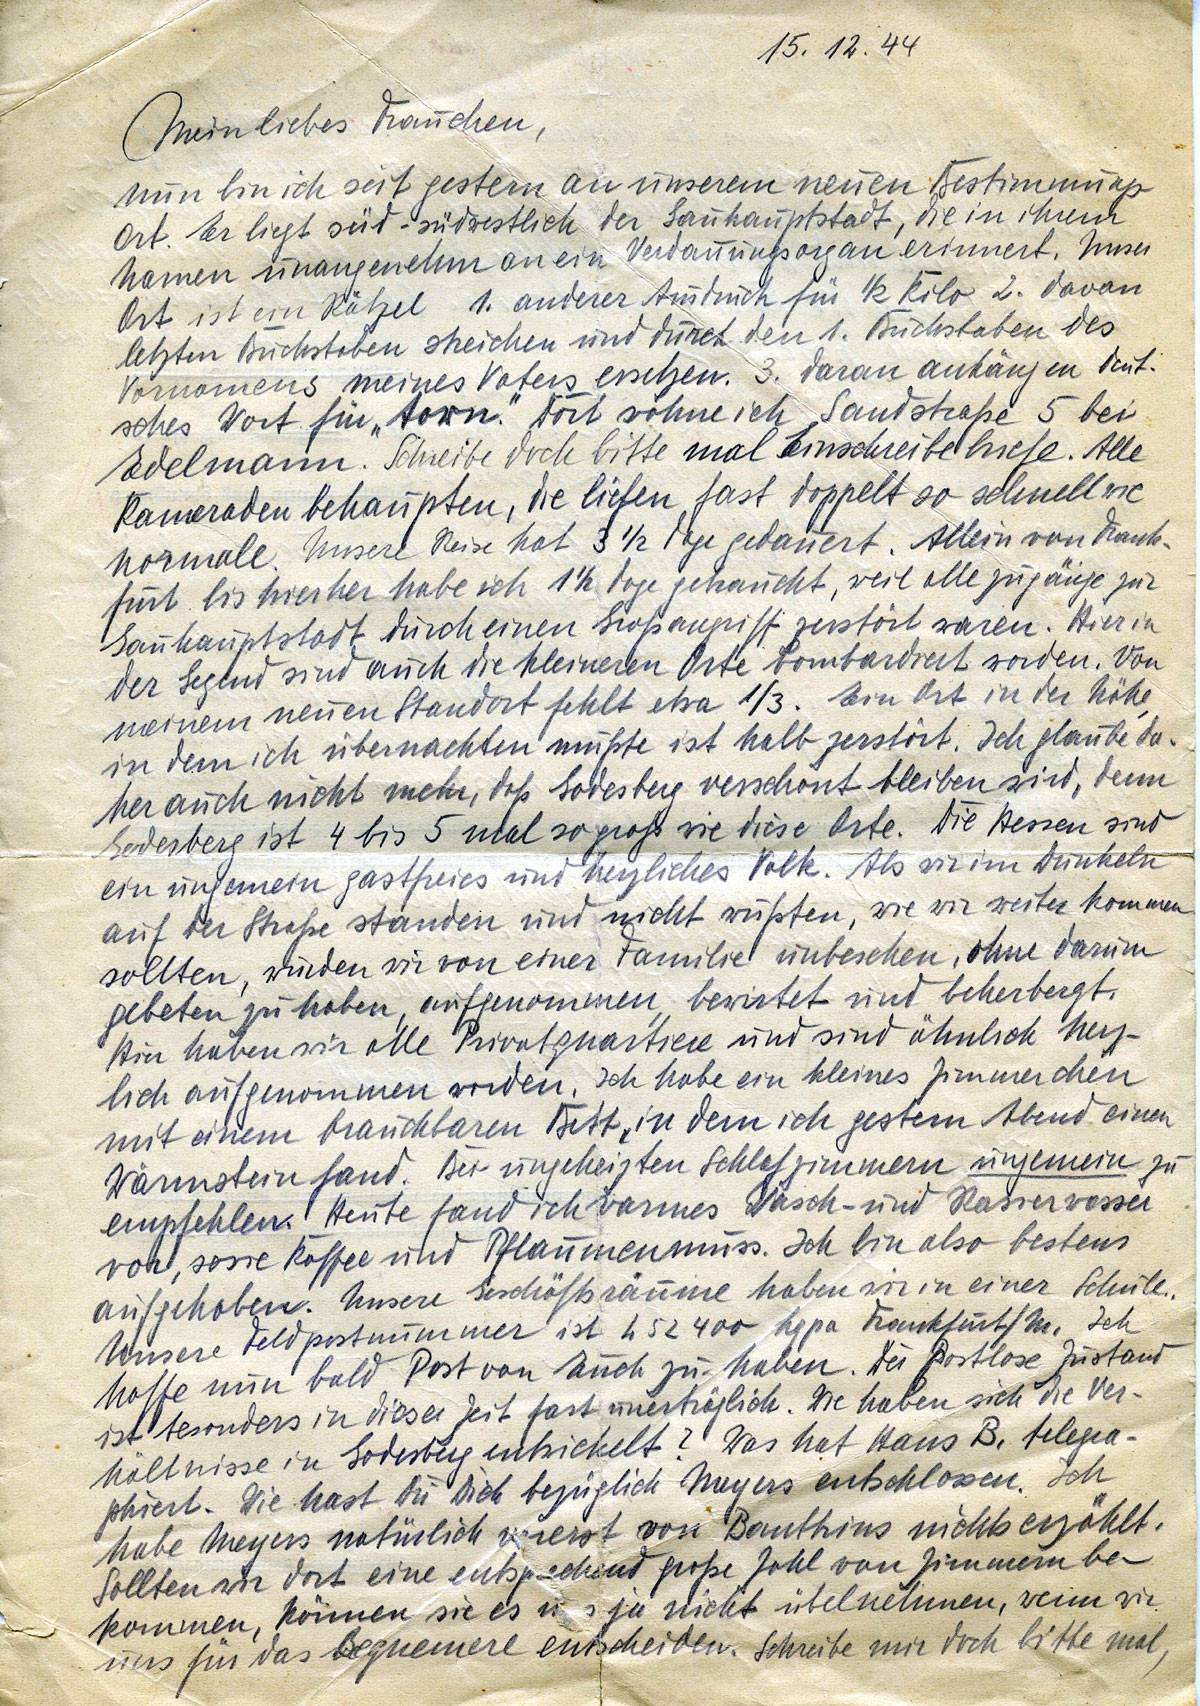 15. 12. 44
Mein liebes Frauchen,
nun bin ich seit gestern an unserem neuen Bestimmungs-
ort. Er liegt süd-südwestlich der Gauhauptstadt, die in ihrem
Namen unangenehm an ein Verdauungsorgan erinnert. Unser
Ort ist ein Rätzel 1. anderer Ausdruck für 1/2 Kilo 2. davon
letzten Buchstaben streichen und durch den 1. Buchstaben des
Vornamens meines Vaters ersetzen. 3. daran anhängen deut-
sches Wort für „town." Dort wohne ich Sandstraße 5 bei
Edelmann. Schreibe doch bitte mal Einschreibebriefe. Alle
Kameraden behaupten, die liefen fast doppelt so schnell wie
normale. Unsere Reise hat 3 1/2 Tage gedauert. Allein von Frank-
furt bis hierher habe ich 1 1/2 Tage gebraucht, weil alle Zugänge zur
Gauhauptstadt durch einen Großangriff zerstört waren. Hier in
der Gegend sind auch die kleineren Orte bombardiert worden. Von
meinem neuen Standort fehlt etwa 1/3. Ein Ort in der Nähe,
in dem ich übernachten mußte ist halb zerstört. Ich glaube da-
her auch nicht mehr, daß Godesberg verschont bleiben wird, denn
Godesberg ist 4 bis 5 mal so groß wie diese Orte. Die Hessen sind
ein ungemein gastfreies und herzliches Volk. Als wir im Dunkeln
auf der Straße standen und nicht wußten, wie wir weiter kommen
sollten, wurden wir von einer Familie unbesehen, ohne darum
gebeten zu haben, aufgenommen, bewirtet und beherbergt.
Hier haben wir alle Privatquartiere und sind ähnlich herz-
lich aufgenommen worden. Ich habe ein kleines Zimmerchen
mit einem brauchbaren Bett, in dem ich gestern Abend einen
Wärmstein fand. Bei ungeheizten Schlafzimmern ungemein zu
empfehlen. Heute fand ich warmes Wasch- und Rasierwasser
vor, sowie Kaffee und Pflaumenmuss. Ich bin also bestens
aufgehoben. Unsere Geschäftsräume haben wir in einer Schule.
Unsere Feldpostnummer ist L 52 400 Lgpa Frankfurt/M. Ich
hoffe nun bald Post von Euch zu haben. Der postlose Zustand
ist besonders in dieser Zeit fast unerträglich. Wie haben sich die Ver-
hältnisse in Godesberg entwickelt? Was hat Hans B. telegra-
phiert. Wie hast Du Dich bezüglich Meyers entschlossen. Ich
habe Meyers natürlich vorerst von Banthins nichts erzählt.
Sollten wir dort eine entsprechend große Zahl von Zimmern be-
kommen, können sie es uns ja nicht übelnehmen, wenn wir
uns für das Bequemere entscheiden. Schreibe mir doch bitte mal,